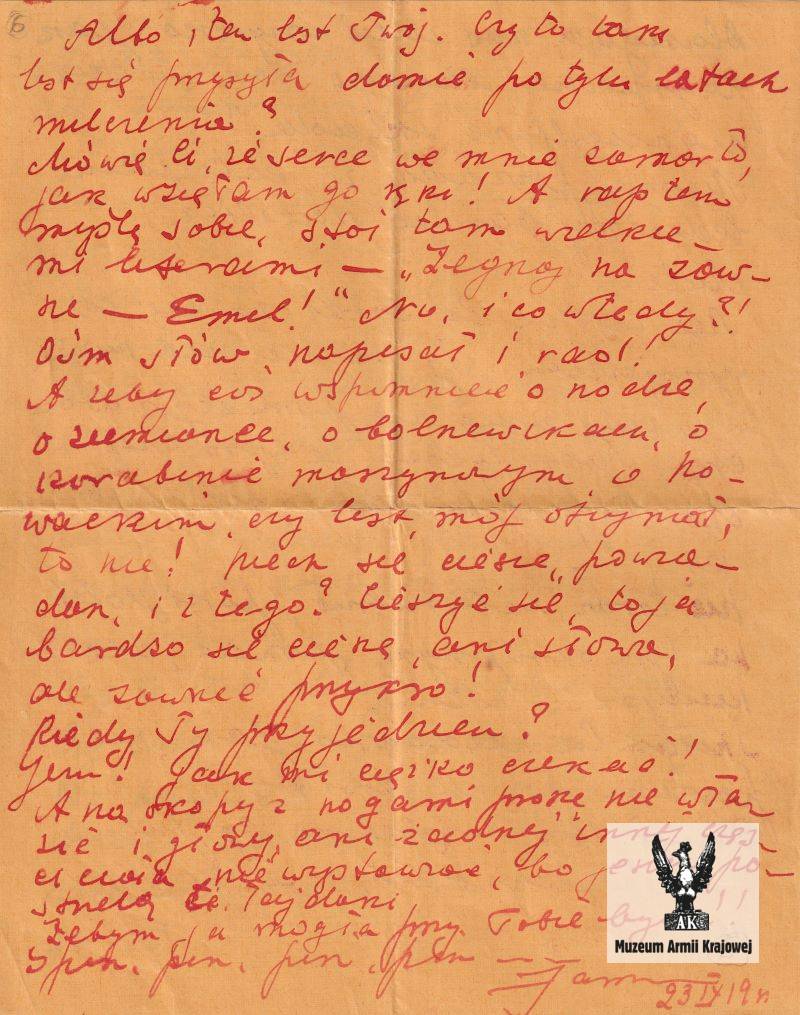 6
Albo i ten list Twój. Czy to taki
list się przysyła do mnie po tylu latach
milczenia?
Mówię Ci, że serce we mnie zamarło,
jak wzięłam go do ręki! A raptem
myślę sobie, stoi tam wielkie-
mi literami — „Żegnaj na zaw-
sze — Emil!" No, i co wtedy?!
Ośm słów napisał i rad!
A żeby coś wspomnieć o
o ziemiance, o bolszewikach, o
karabinie maszynowym, o No-
wackim, czy list mój otrzymał,
to nie! Niech się cieszę, powia-
dan, i z tego? Cieszyć się, to ja
bardzo się cieszę, ani słowa,
ale zawsze przykro!
Kiedy Ty przyjedziesz?
Jezu! Jak mi ciężko czekać!
A na okopy z nogami proszę nie wła-
zić i głowy, ani żadnej innej częś-
ci ciała nie wystawiać, bo jeszcze po-
strzelą Cię łajdaki
Żebym ja mogła przy Tobie być!!
Spij,
23 IX 19 r.
AK
Muzeum Armii Krajowej